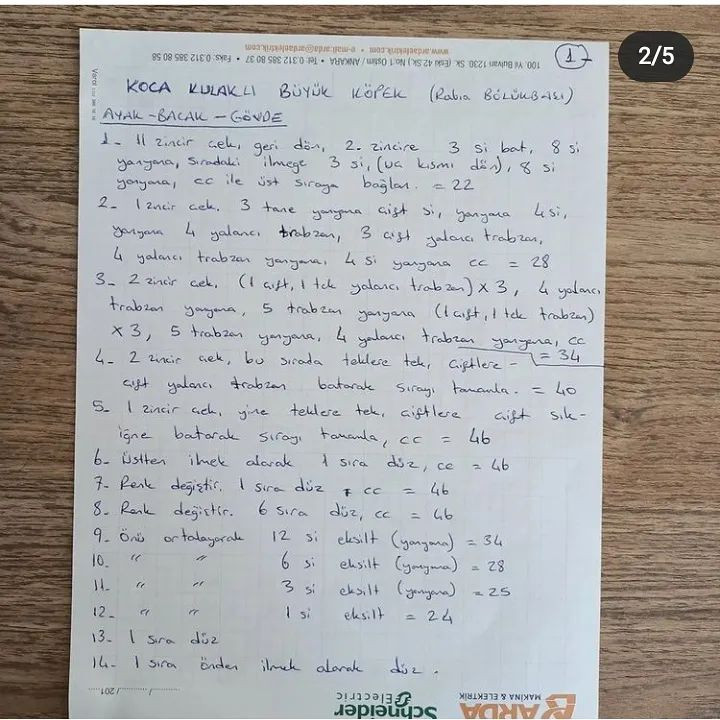 2/5
1-
100. Yıl Bulvarı 1230. Sk. (Eski 42 Sk.) No:1 Ostim / ANKARA • Tel: 0.312 385 80 37 • Faks: 0.312 385 80 58
www.ardaelektrik.com • e-mail:arda@ardaelektrik.com
KOCA KULAKLI BÜYÜK KÖPEK (Rabia BÖLÜKBAŞI)
AYAK-BACAK-GÖVDE
1- 11 zincir çek, geri dön, 2. zincire 3 si bat, 8 si
yanyana, sıradaki ilmeğe 3 si, (uç kısmı dön), 8 si
yanyana, cc ile üst sıraya bağlan. = 22
2- 1 zincir çek. 3 tane yanyana çift si, yanyana 4 si,
yanyana 4 yalancı trabzan, 3 çift yalancı trabzan,
4 yalancı trabzan yanyana, 4 si yanyana cc = 28
3- 2 zincir çek. (1 çift, 1 tek yalancı trabzan) x 3, 4 yalancı
trabzan yanyana, 5 trabzan yanyana (1 çift, 1 tek trabzan)
x 3, 5 trabzan yanyana, 4 yalancı trabzan yanyana, cc
= 34
4- 2 zincir çek, bu sırada teklere tek, çiftlere -
çift yalancı trabzan batarak sırayı tamamla. = 40
5- 1 zincir çek, yine teklere tek, çiftlere çift sık-
iğne batarak sırayı tamamla, cc = 46
6- Üstten ilmek alarak 1 sıra düz, cc = 46
7- Renk değiştir. 1 sıra düz cc = 46
8- Renk değiştir. 6 sıra düz, cc = 46
9- Önü ortalayarak 12 si eksilt (yanyana) = 34
10. " " 6 si eksilt (yanyana) = 28
11- " " 3 si eksilt (yanyana) = 25
12- " " 1 si eksilt = 24
13- 1 sıra düz
14- 1 sıra önden ilmek alarak düz.
....../....../201....
Schneider Electric
ARDA
MAKİNA & ELEKTRİK